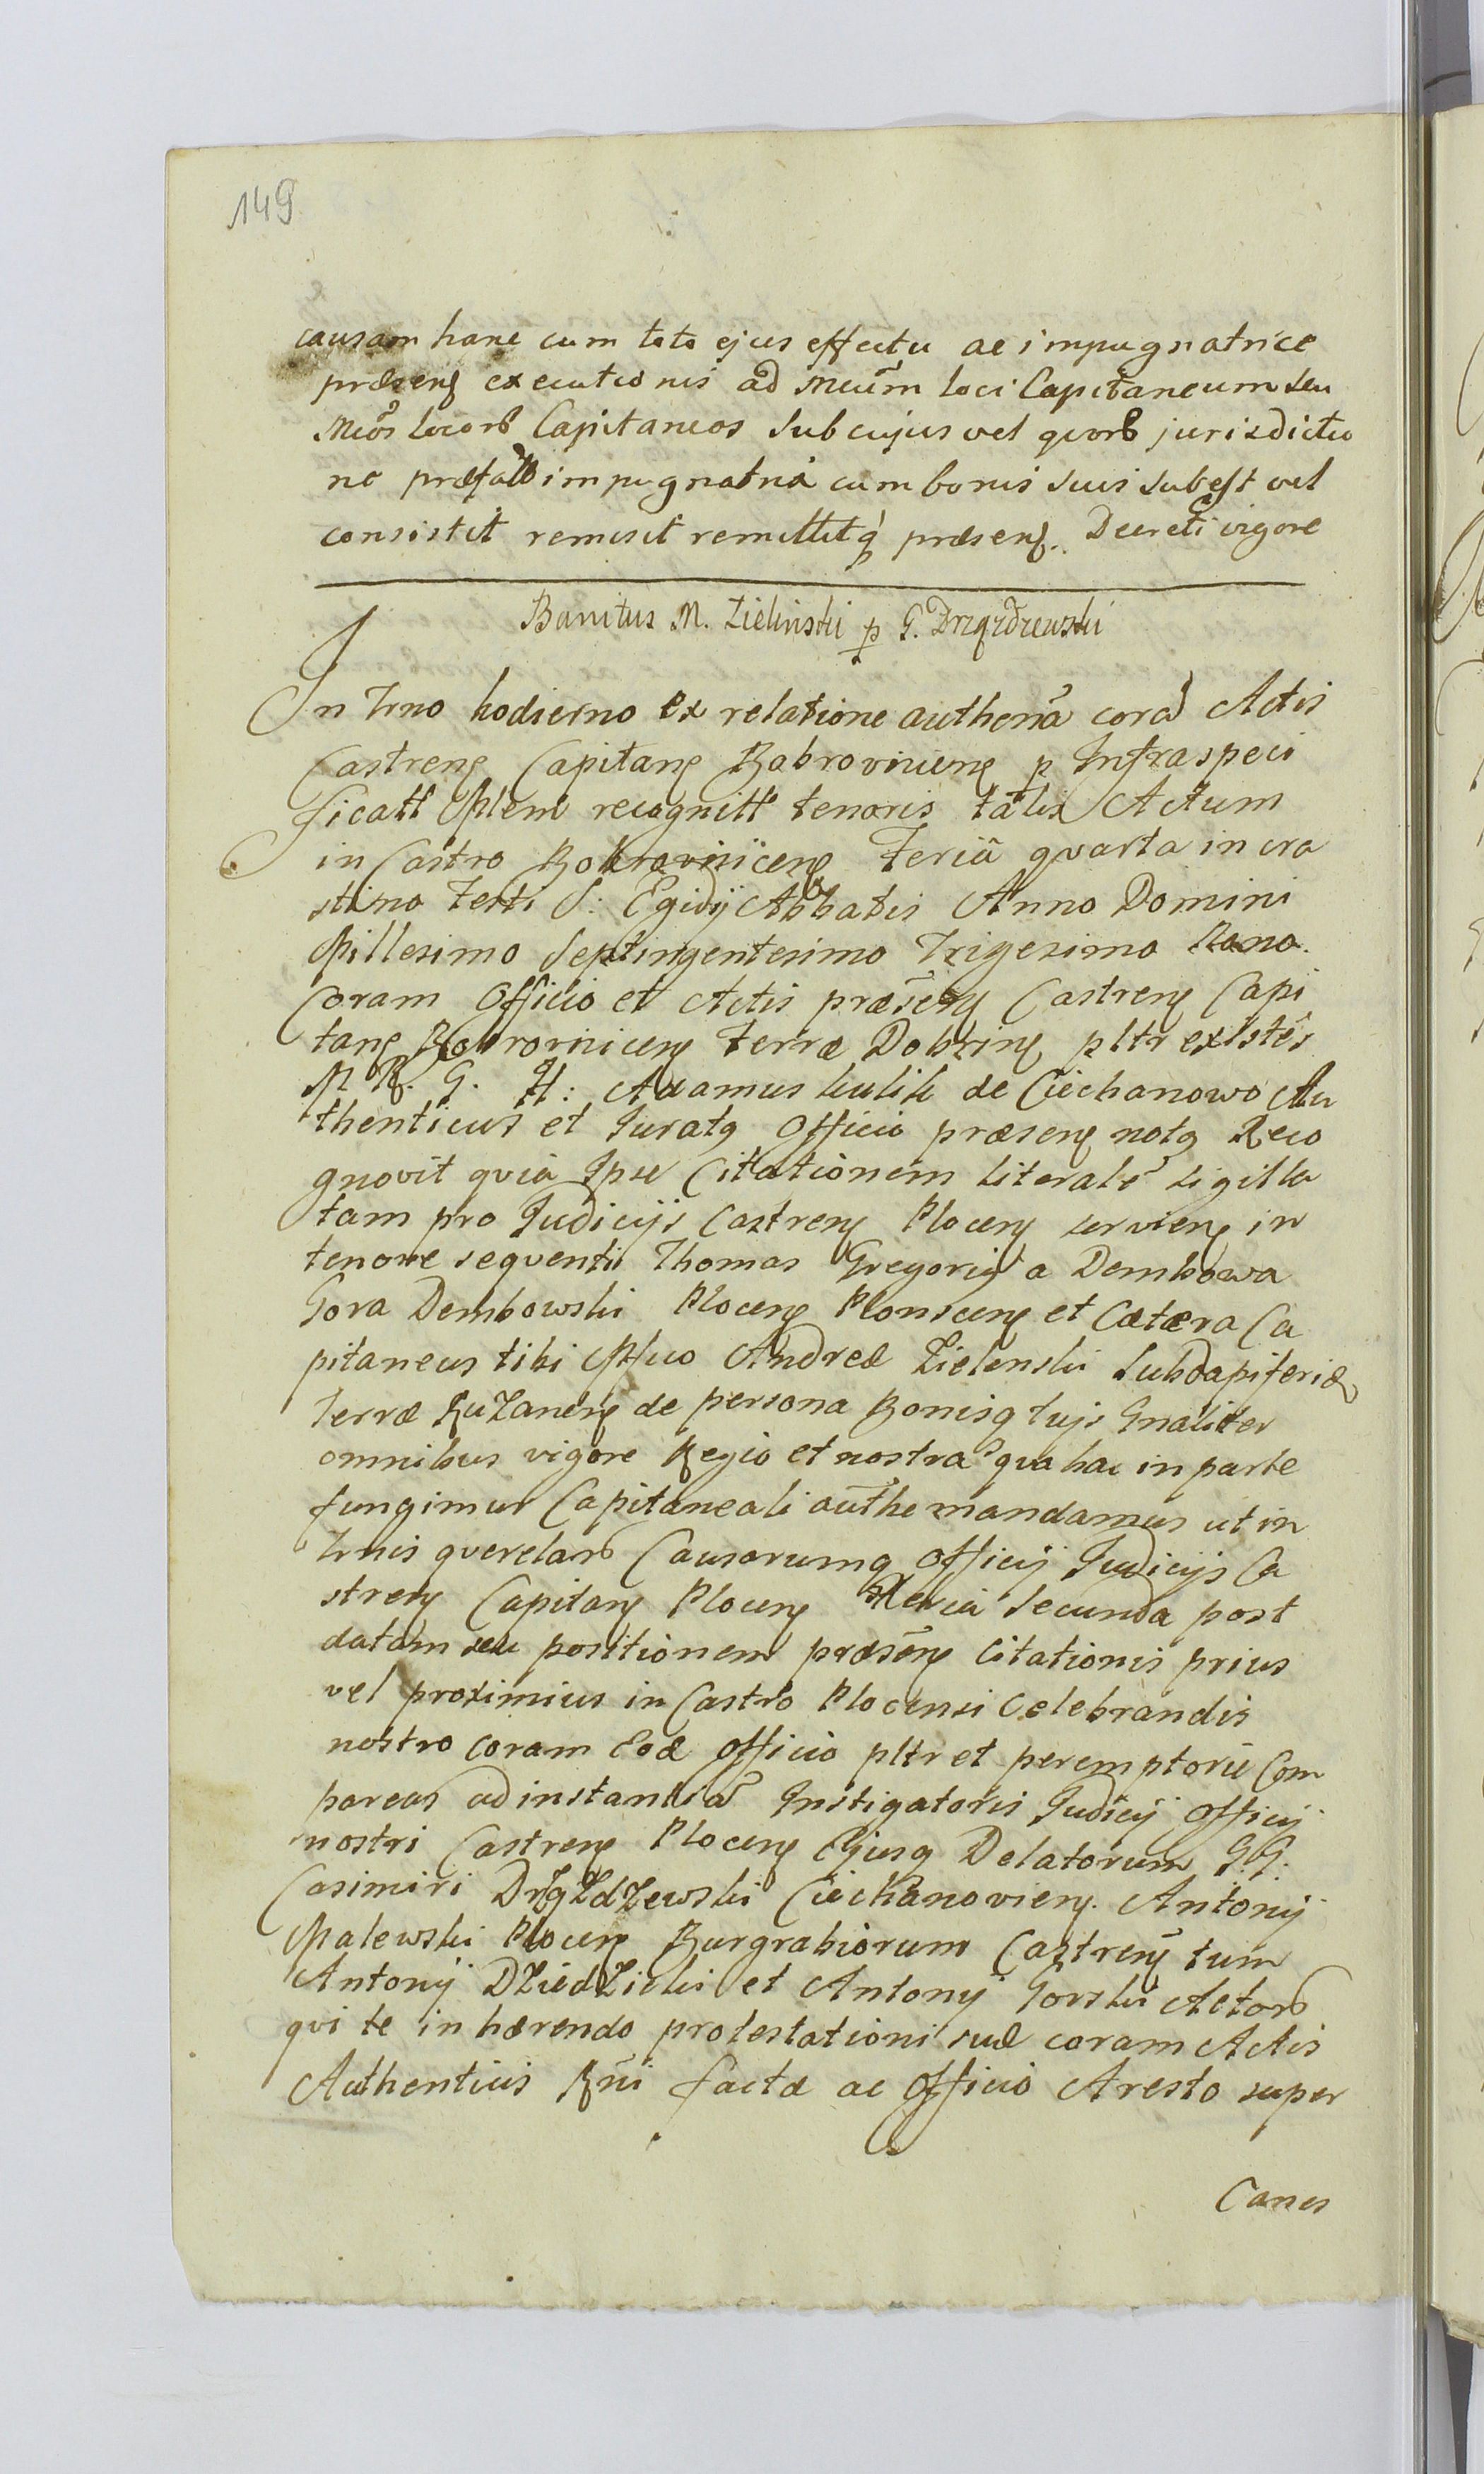 149
causam hanc cum toto ejus effectu ac impugnatrice
præsenꝭ executionis ad Mcum̃ loci Capitaneum seu
Mcõs locorꝭ Capitaneos sub cujus vel qvorꝭ jurisdictio
ne præfata impugnatrix cum bonis suis subest vel
consistit remisit remittitq́ præsenꝭ. Decreti vigore
Banitus M. Zielinski ꝑ G. Drzązdzewski
In Trno hodierno ex relatione authen̄a corã Actis
Castrenꝭ Capitanꝭ Bobrovnicenꝭ ꝑ Infraspeci
ficatt Mlem recognitt tenoris talis Actum
in Castro Bobrovnicenꝭ Feria qvarta in cra
stino Festi S: Egidij Abbatis Anno Domini
Millesimo Septingentesimo Trigesimo Nono.
Coram Officio et Actis præsenꝭ Castrenꝭ Capi
tanꝭ Bobrovnicenꝭ Terræ Dobrinꝭ pltr existẽs
M. R. G. H: Adamus kulik de Ciechanowo Au
thenticus et Juratꝯ Officio præsenꝭ notꝯ Reco
gnovit qvia Ipse Citationem literalẽ sigilla
tam pro Judicijs Castrenꝭ Plocenꝭ servienꝭ in
tenore seqventi Thomas Gregoriꝯ a Dembowa
Gora Dembowski Plocenꝭ Plonscenꝭ et Cætæra Ca
pitaneus tibi Mfico Andreæ Zielenski Subdapiferidæ
Terræ Ruzanenꝭ de persona Bonisq tujs Gnaliter
omnibus vigore Regio et nostra qva hac in parte
fungimur Capitaneali authẽ mandamus ut in
Trnis qverelarꝭ Causarumq Officij Judicijs Ca
strenꝭ Capitanꝭ Plocenꝭ Feria Secunda post
datam seu positionem præsenꝭ Citationis prius
vel proximius in Castro Plocensi Celebrandis
nostro coram Eodẽ Officio pltr et peremptorie Com
pareas ad instantiã Instigatoris Judicij Officij
nostri Castrenꝭ Plocenꝭ Ejusq Delatorum G.G.
Casimiri DrZąZdZewski Ciechanovienꝭ. Antonij
Malewski Plocenꝭ Burgrabiorum Castrenꝭ tum
Antonij DZiedZicki et Antonij Gorski Actorꝭ
qvi te inhærendo protestationi suæ coram Actis
Authenticis Rñi factæ ac Officio Aresto super
Canes